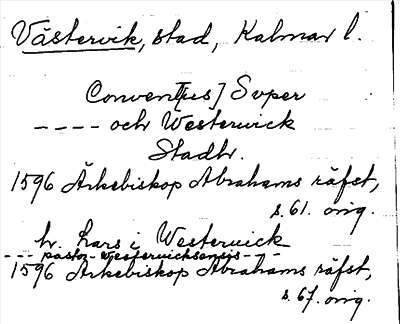 Västervik, stad, Kalmar l.
Convent[us] Svper
---- och Westerwick
Stadhr.
1596 Ärkebiskop Abrahams räfst,
s. 61. orig.
hr. Lars i Westerwick
--- pastor Westervichsensis ---
1596 Ärkebiskop Abrahams räfst,
s. 67. orig.